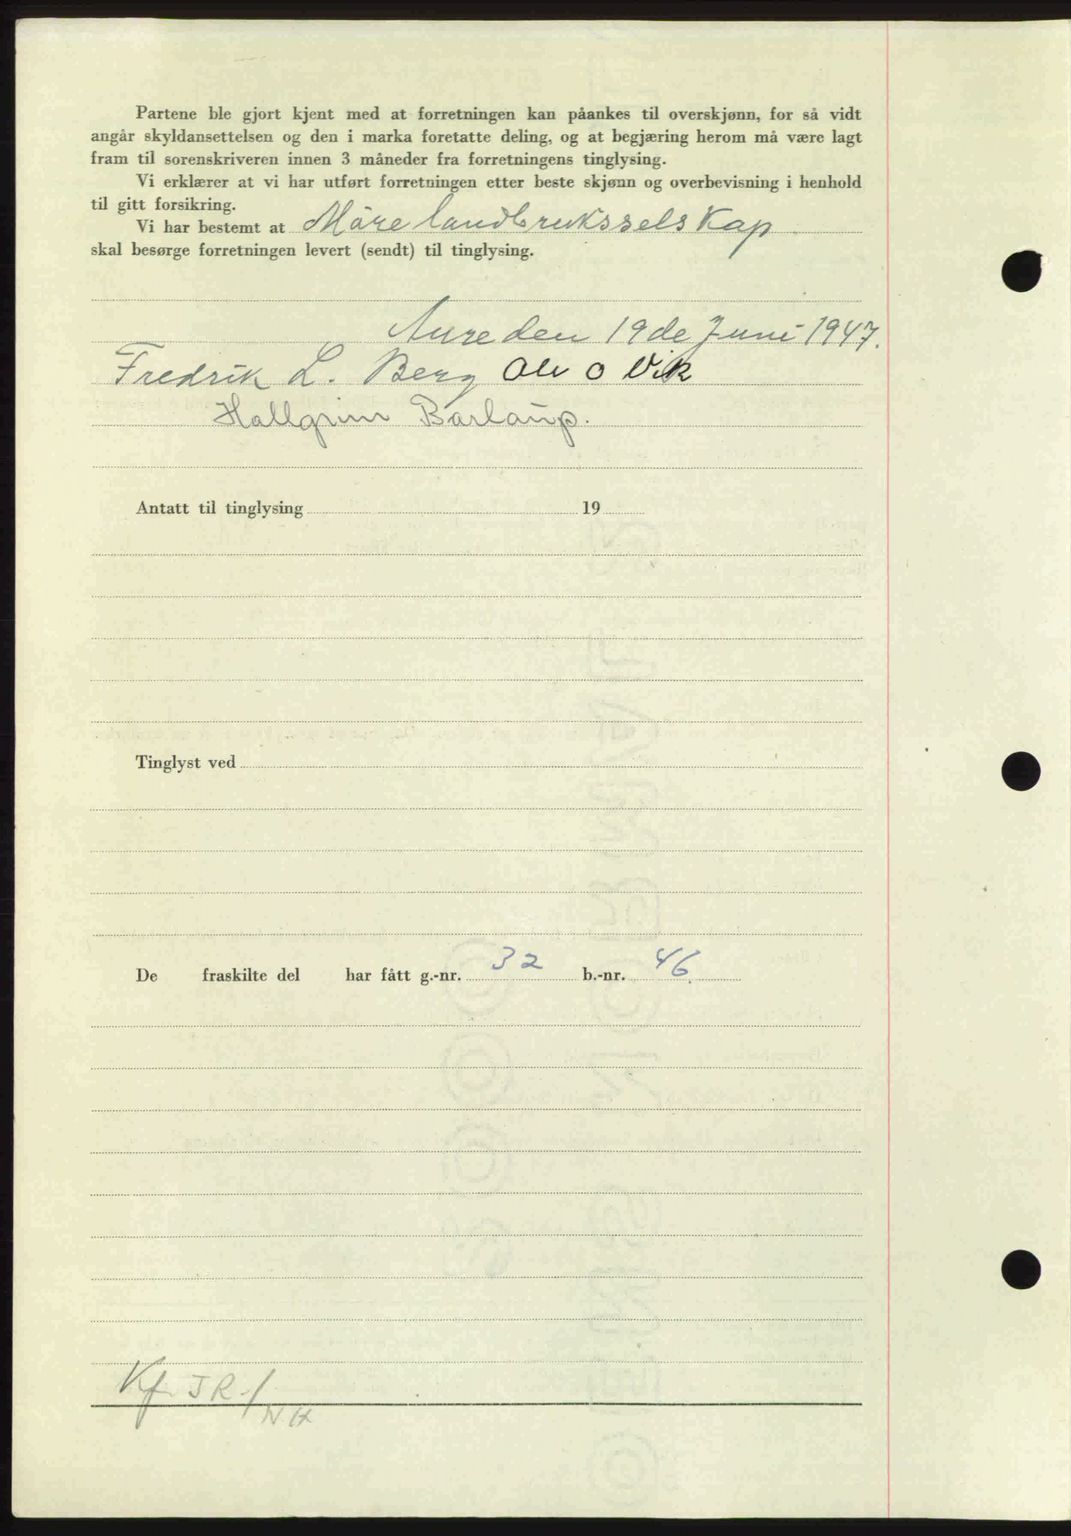 Partene ble gjort kjent med at forretningen kan påankes til overskjønn, for så vidt
angår skyldansettelsen og den i marka foretatte deling, og at begjæring herom må være lagt
fram til sorenskriveren innen 3 måneder fra forretningens tinglysing.
Vi erklærer at vi har utført forretningen etter beste skjønn og overbevisning i henhold
til gitt forsikring.
Vi har bestemt at Möre landbruksselskap
skal besørge forretningen levert (sendt) til tinglysing.
Aure den 19de Juni 1947.
Fredrik L. Berg Ole O Vik
Hallgrim Barlaup.
Antatt til tinglysing 19
Tinglyst ved
De fraskilte del har fått g.-nr. 32 b.-nr. 46
Kf. JR./
NH